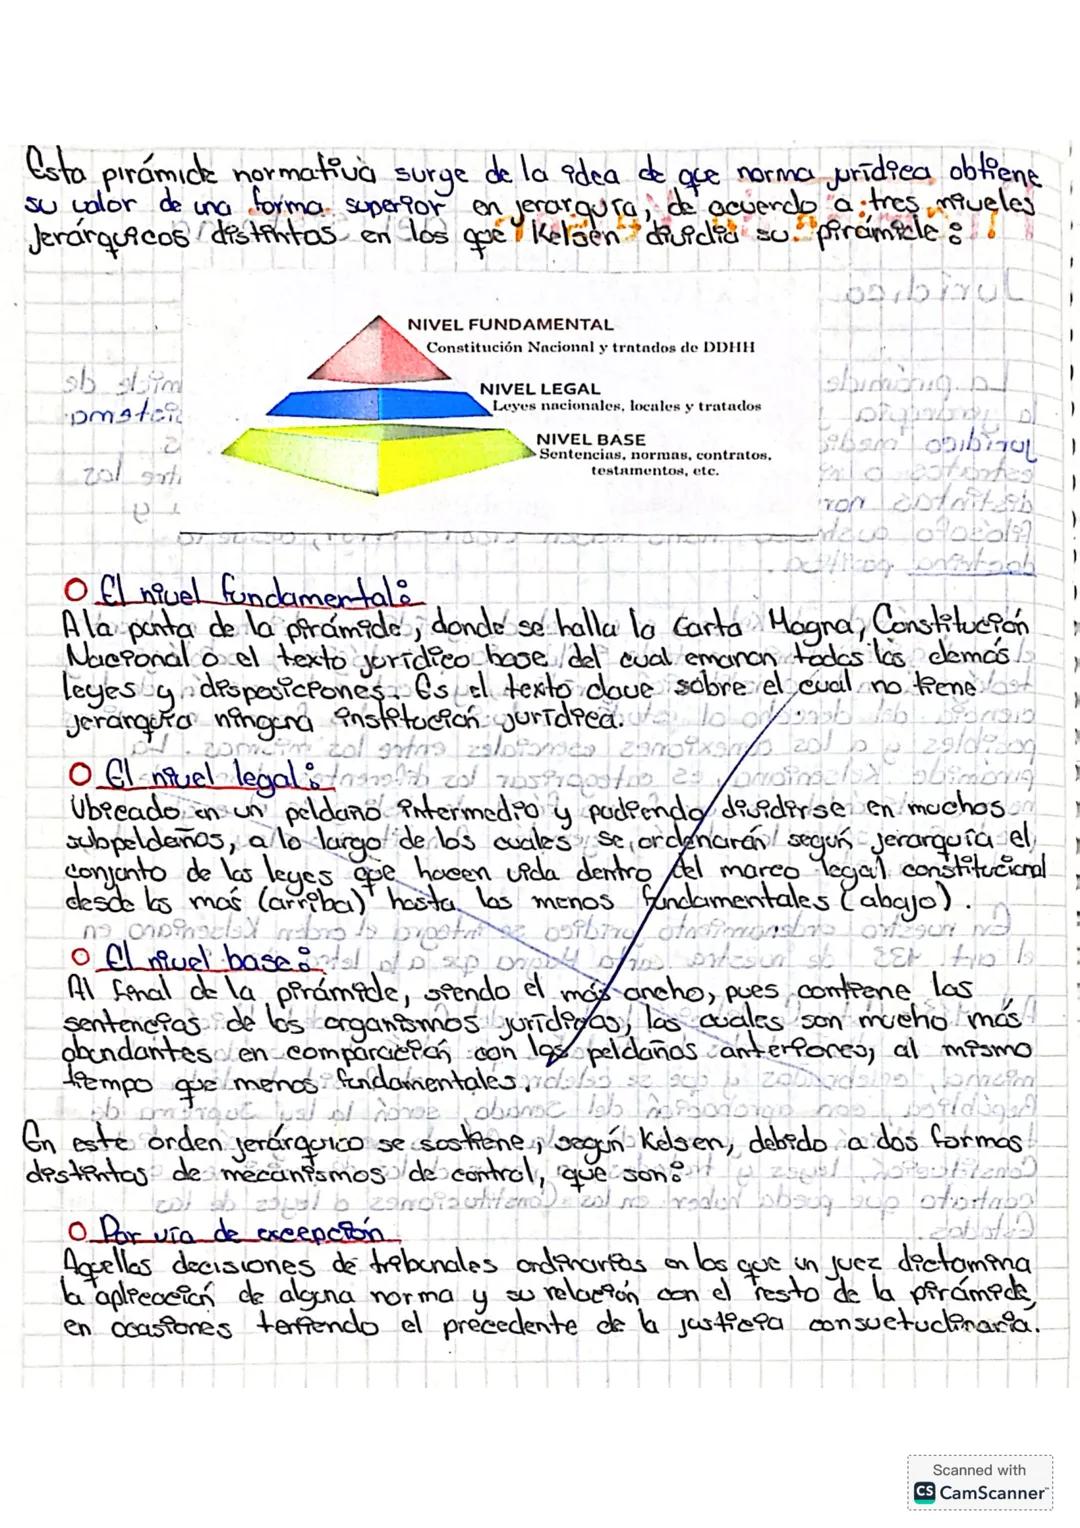 Esta pirámide normativa surge de la idea de que norma jurídica obtiene
su valor de una forma superior en jerarquía, de acuerdo a tres niveles
Jerárquicos distintos en los que Kelsen dividía su pirámide:
NIVEL FUNDAMENTAL
Constitución Nacional y tratados de DDHH
NIVEL LEGAL
Leyes nacionales, locales y tratados
NIVEL BASE
Sentencias, normas, contratos,
testamentos, etc.
O El nivel fundamental:
A la punta de la pirámide, donde se halla la Carta Magna, Constitución
Nacional o el texto jurídico base del cual emanan todas las demás
leyes y disposiciones. Es el texto clave sobre el cual no tiene
jerarquía ninguna institución jurídica.
O El nivel legal:
Ubicado en un peldaño intermedio y pudiendo dividirse en muchos
subpeldaños, a lo largo de los cuales se ordenarán según jerarquía el
conjunto de las leyes que hacen vida dentro del marco legal constitucional
desde las más (arriba) hasta las menos fundamentales (abajo).
O El nivel base:
Al final de la pirámide, siendo el más ancho, pues contiene las
sentencias de los organismos jurídicos, las cuales son mucho más
abundantes en comparación con los peldaños anteriores, al mismo
tiempo que menos fundamentales.
En este orden jerárquico se sostiene, según Kelsen, debido a dos formas
distintas de mecanismos de control, que son:
O Por vía de excepción
Aquellas decisiones de tribunales ordinarios en los que un juez dictamina
la aplicación de alguna norma y su relación con el resto de la pirámide,
en ocasiones teniendo el precedente de la justicia consuetudinaria.
Scanned with
CS CamScanner